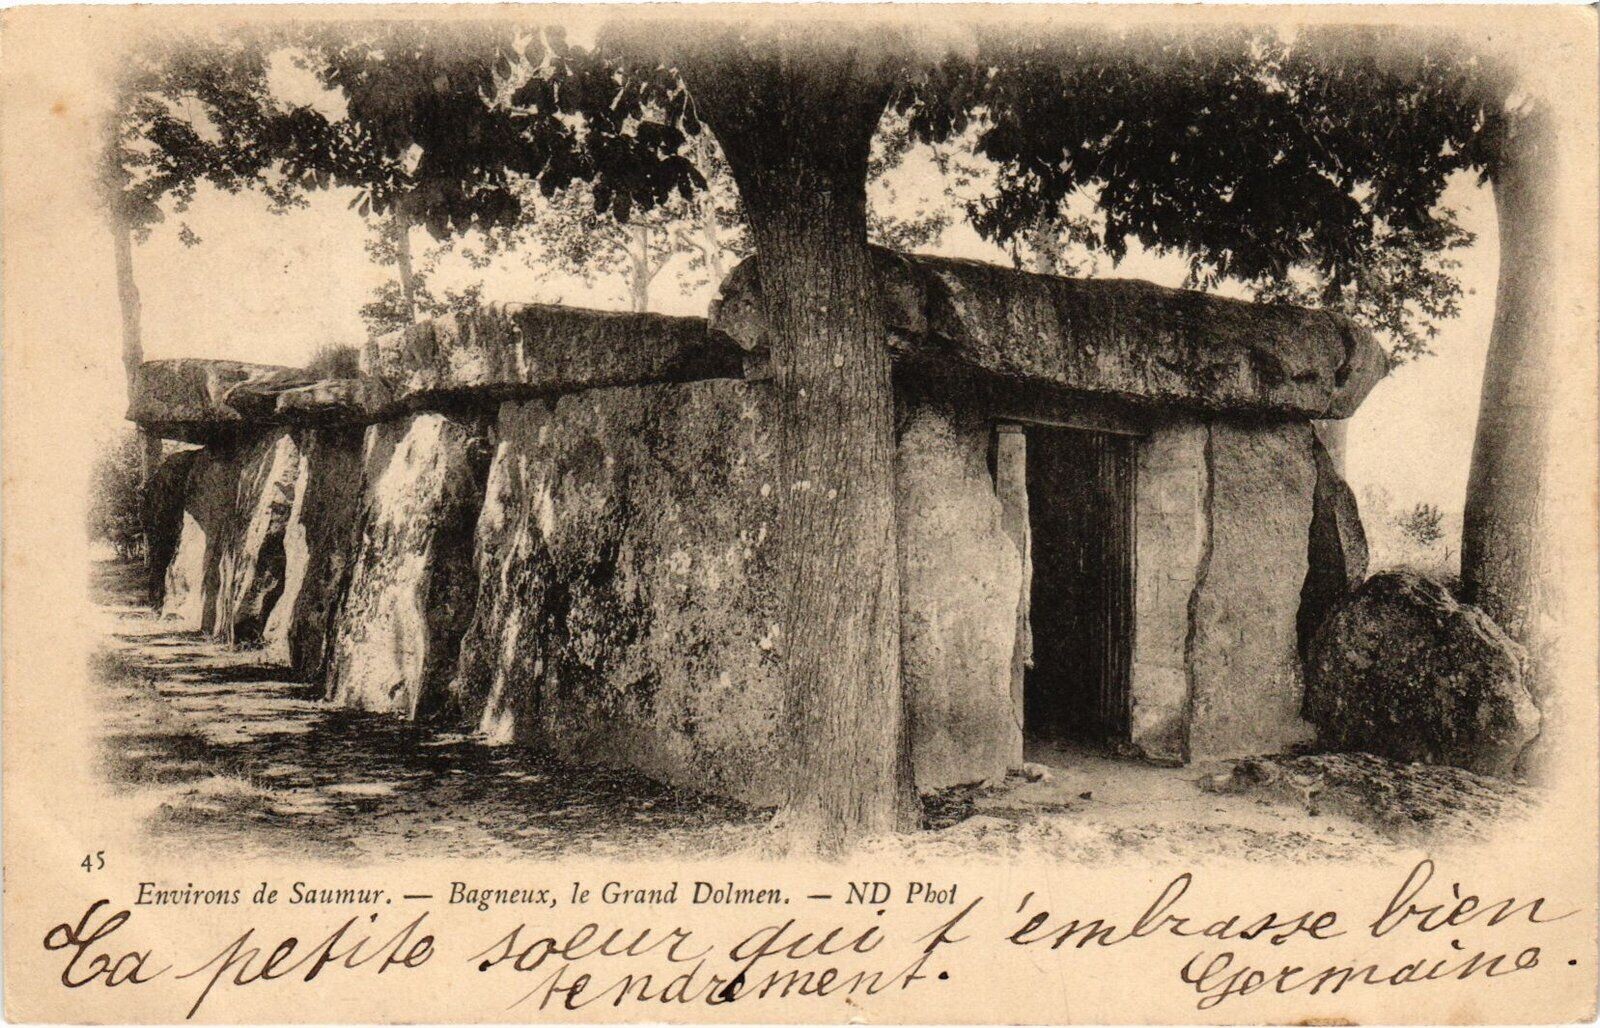 45
Environs de Saumur. — Bagneux, le Grand Dolmen. — ND Phot
Ta petite soeur qui t'embrasse bien
tendrement. Germaine.